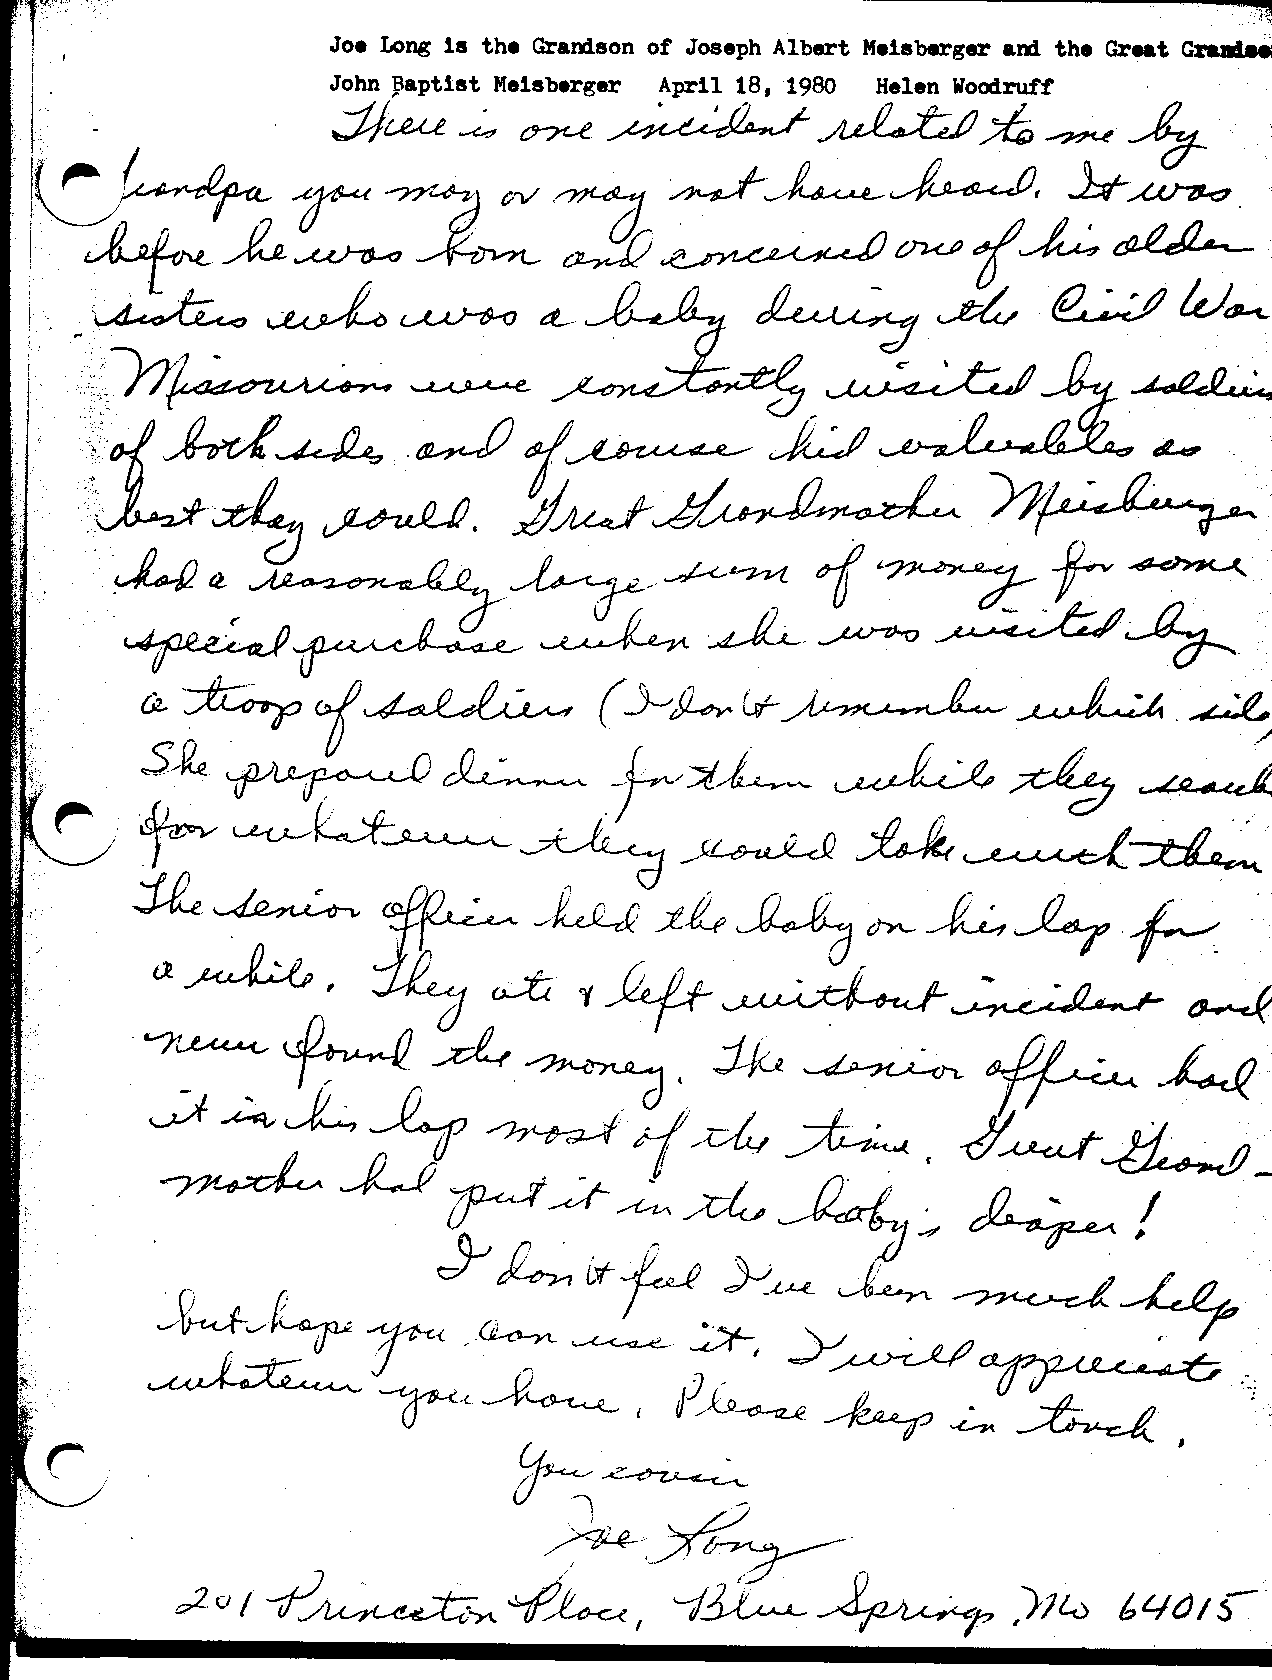 Joe Long is the Grandson of Joseph Albert Meisberger and the Great Grandso
John Baptist Meisberger April 18, 1980 Helen Woodruff
There is one incident related to me by
Grandpa you may or may not have heard. It was
before he was born and concerned one of his older
sisters who was a baby during the Civil War
Missourians were constantly visited by soldiers
of both sides and of course hid valuables as
best they could. Great Grandmother Meisberger
had a reasonably large sum of money for some
special purchase when she was visited by
a troop of soldiers (I don't remember which side)
She prepared dinner for them while they search
for whatever they could take with them
The senior officer held the baby on his lap for
a while. They ate & left without incident and
never found the money. The senior officer had
it in his lap most of the time. Great Grand-
mother had put it in the baby's diaper!
I don't feel I've been much help
but hope you can use it. I will appreciate
whatever you have. Please keep in touch.
You cousin
Joe Long
201 Princeton Place, Blue Springs, Mo 64015